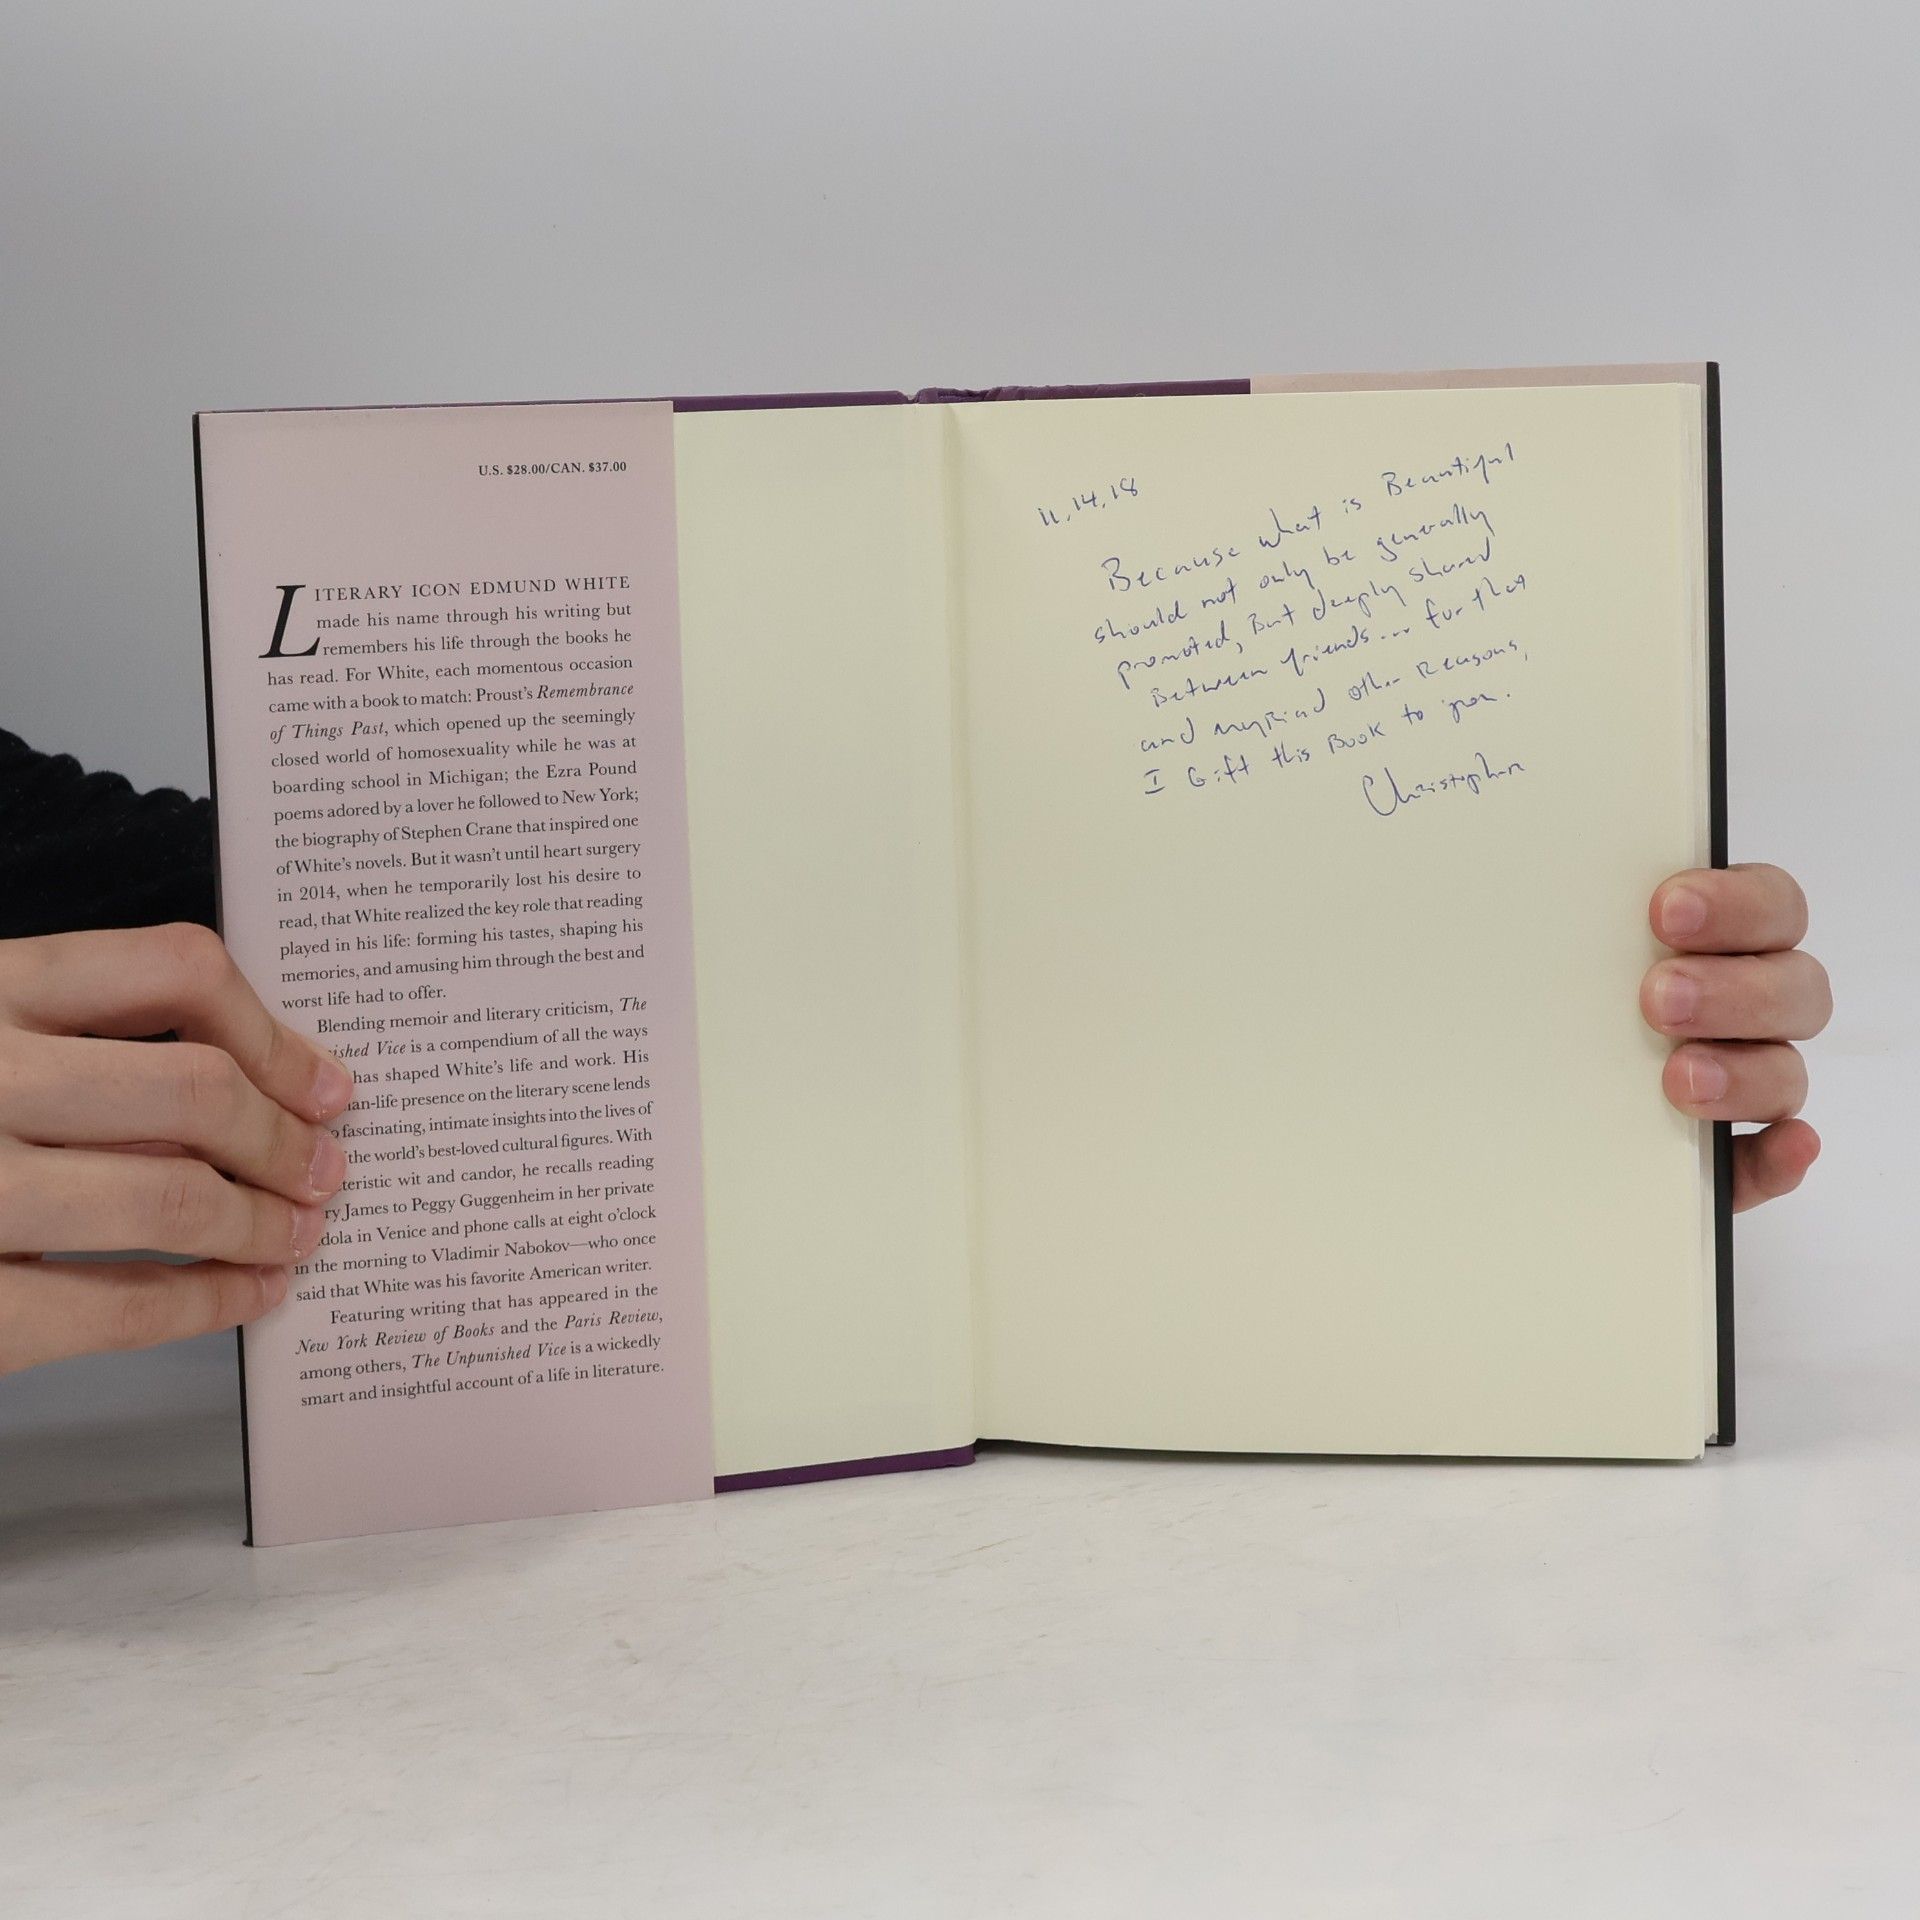 U.S. $28.00/CAN. $37.00
LITERARY ICON EDMUND WHITE
made his name through his writing but
remembers his life through the books he
has read. For White, each momentous occasion
came with a book to match: Proust's Remembrance
of Things Past, which opened up the seemingly
closed world of homosexuality while he was at
boarding school in Michigan; the Ezra Pound
poems adored by a lover he followed to New York;
the biography of Stephen Crane that inspired one
of White's novels. But it wasn't until heart surgery
in 2014, when he temporarily lost his desire to
read, that White realized the key role that reading
played in his life: forming his tastes, shaping his
memories, and amusing him through the best and
worst life had to offer.
Blending memoir and literary criticism, The
Vice is a compendium of all the ways
has shaped White's life and work. His
presence on the literary scene lends
fascinating, intimate insights into the lives of
the world's best-loved cultural figures. With
wit and candor, he recalls reading
James to Peggy Guggenheim in her private
in Venice and phone calls at eight o'clock
in the morning to Vladimir Nabokov—who once
said that White was his favorite American writer.
Featuring writing that has appeared in the
New York Review of Books and the Paris Review,
among others, The Unpunished Vice is a wickedly
smart and insightful account of a life in literature.
11.14.18
Because what is Beautiful
should not only be generally
promoted, But deeply shared
Between friends... for that
and myriad other Reasons,
I Gift this Book to you.
Christopher